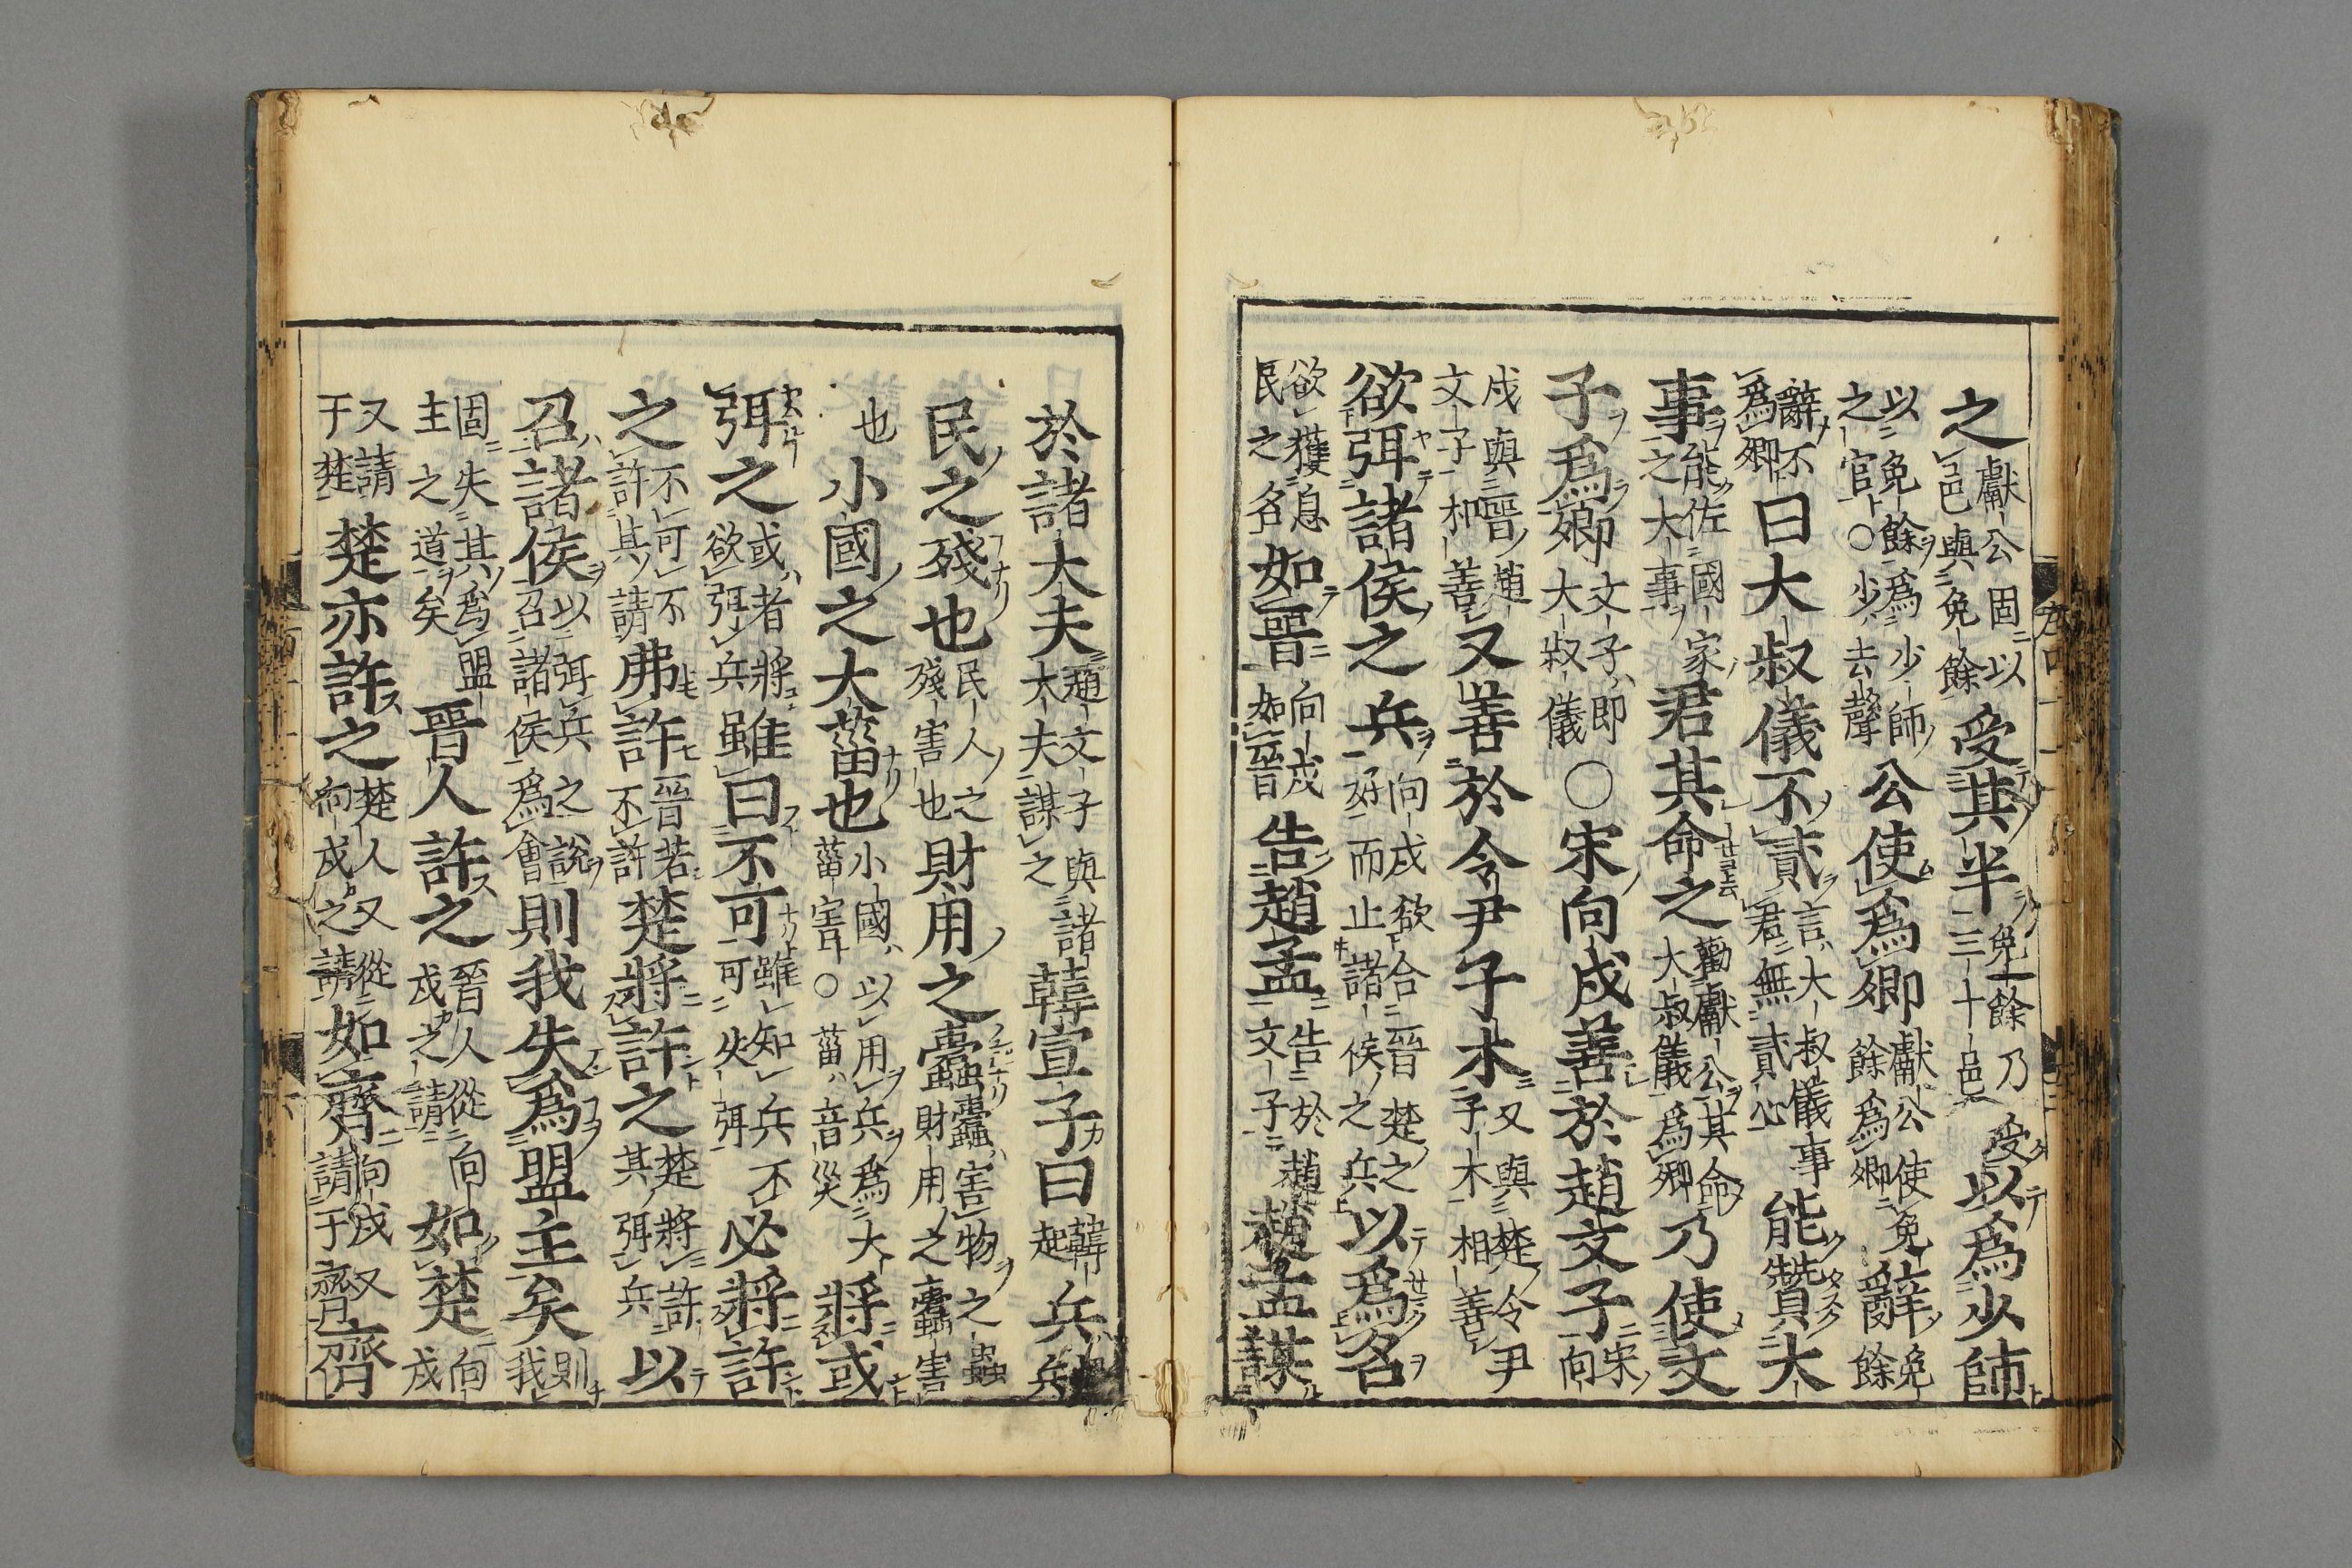 之獻公固以邑與免餘受其半免餘乃受三十邑以爲少師
以免餘爲少師之官○少去聲公使爲卿獻公使免餘爲卿辭免餘
辭不爲卿曰大叔儀不貳言大叔儀事君無貳心能贊大
事能佐國家之大事君其命之勸獻公其命大叔儀爲卿乃使文
子爲卿文子即大叔儀○宋向戌善於趙文子宋向
戌與晉趙文子相善又善於令尹子木又與楚令尹子木相善
欲弭諸侯之兵向戌欲合晉楚之好而止諸侯之兵以爲名
欲獲息民之名如晉向戌如晉告趙孟告於趙文子趙孟謀
於諸大夫趙文子與諸大夫謀之韓宣子曰韓起兵
民之殘也民人之殘害也財用之蠹蠹害物之蟲財用之蠹害
也小國之大菑也小國以用兵爲大菑害○菑音災將或
弭之或者將欲弭兵雖曰不可雖知兵不可失弭必將許
之不可不許其請弗許晉若不許楚將許之楚將許其弭兵以
召諸侯以弭兵之說召諸侯爲會則我失爲盟主矣則我
固失其爲盟主之道矣晉人許之晉人從向戌之請如楚向戌
又請于楚楚亦許之楚人又從向戌之請如齊向戌又請于齊齊